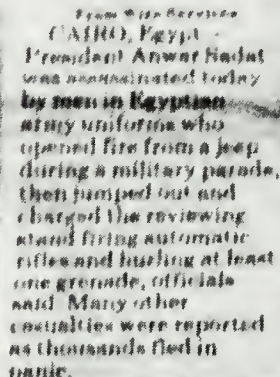 From Wire Services
CAIRO, Egypt -
President Anwar Sadat
was assassinated today
by men in Egyptian
army uniforms who
opened fire from a jeep
during a military parade,
then jumped out and
charged the reviewing
stand firing automatic
rifles and hurling at least
one grenade, officials
said. Many other
casualties were reported
as thousands fled in
panic.